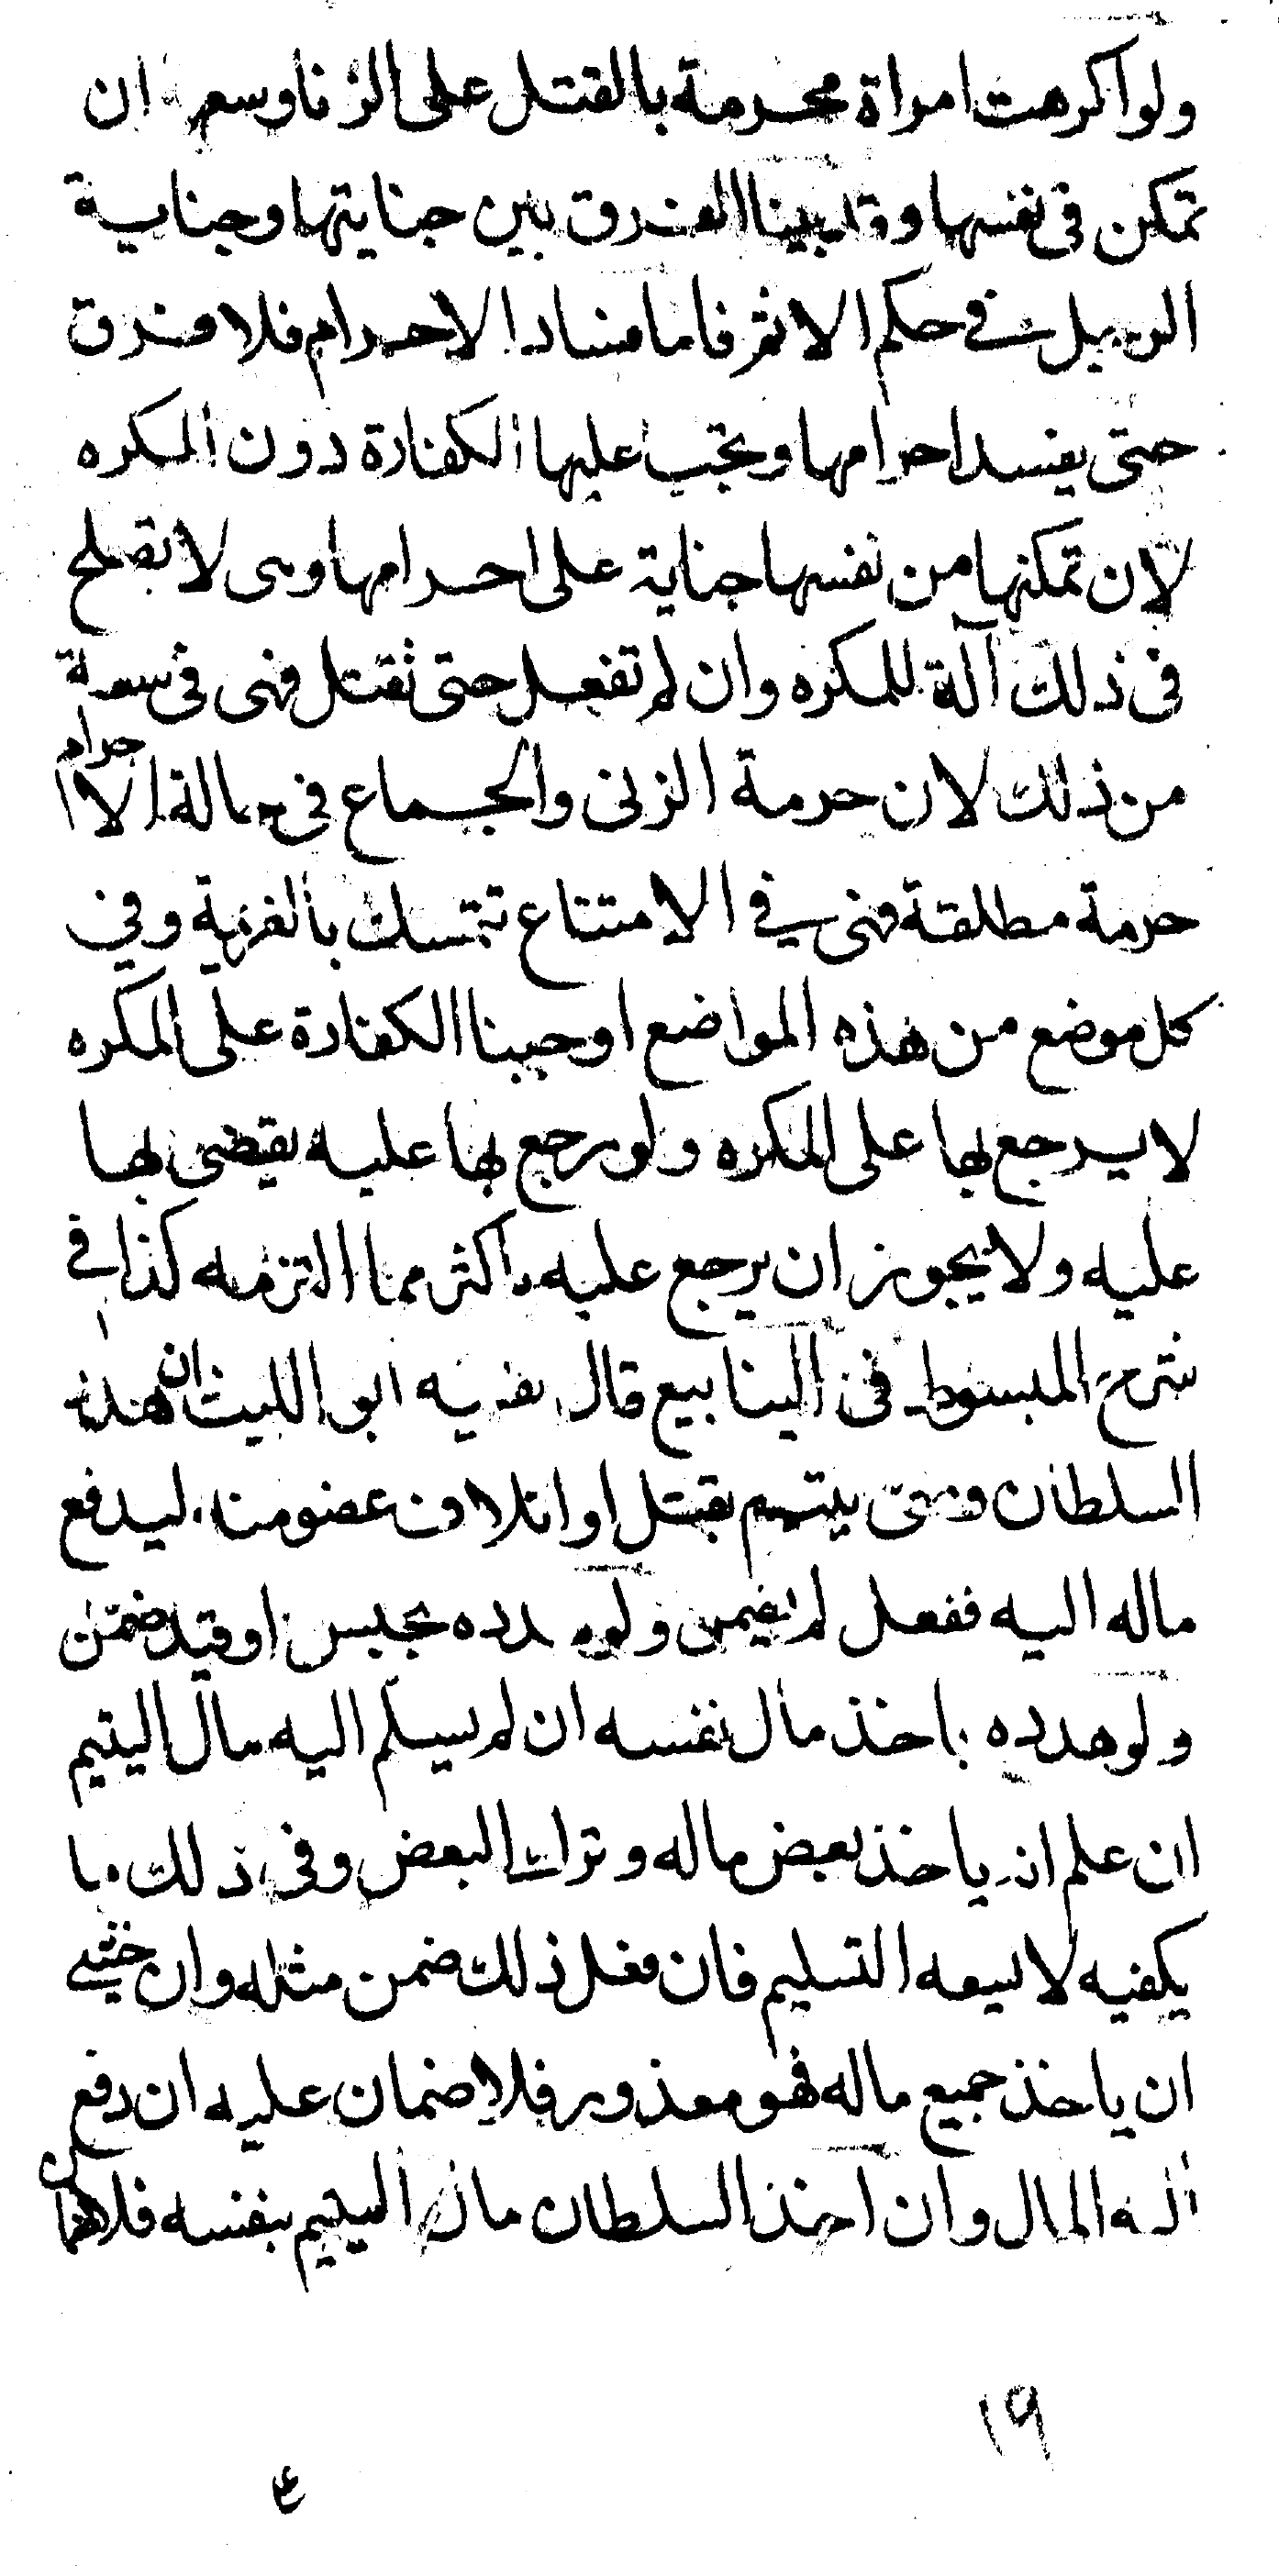 ولو اكرهت امراة محرمة بالقتل على الزنا وسعها ان
تمكن فى نفسها وقد بينا الفرق بين جنايتها وجناية
الرجل في حكم الاثم فاما فساد الاحرام فلا فرق
حتى يفسد احرامها وتجب عليها الكفارة دون المكره
لان تمكنها من نفسها جناية على احرامها وهى لا تصلح
فى ذلك آلة للمكره وان لم تفعل حتى تقتل فهى فى سعة
من ذلك لان حرمة الزنى والجماع فى حالة الاحرام
حرمة مطلقة فهى في الامتناع تتمسك بالعزيمة وفي
كل موضع من هذه المواضع اوجبنا الكفارة على المكره
لا يرجع بها على المكره ولو رجع بها عليه يقضى بها
عليه ولا يجوز ان يرجع عليه باكثر مما التزمه كذا في
شرح المبسوط فى الينابيع قال فقيه ابو الليث ان هدد
السلطان وصى يتيم بقتل او اتلاف عضو منه ليدفع
ماله اليه ففعل لم يضمن ولو هدده بحبس او قيد ضمن
ولو هدده باخذ مال نفسه ان لم يسلم اليه مال اليتيم
ان علم انه ياخذ بعض ماله وترك البعض وفى ذلك ما
يكفيه لا يسعه التسليم فان فعل ذلك ضمن مثله وان خشي
ان ياخذ جميع ماله فهو معذور فلا ضمان عليه ان دفع
اليه المال وان اخذ السلطان مال اليتيم بنفسه فلا ضمان
١٩
ع